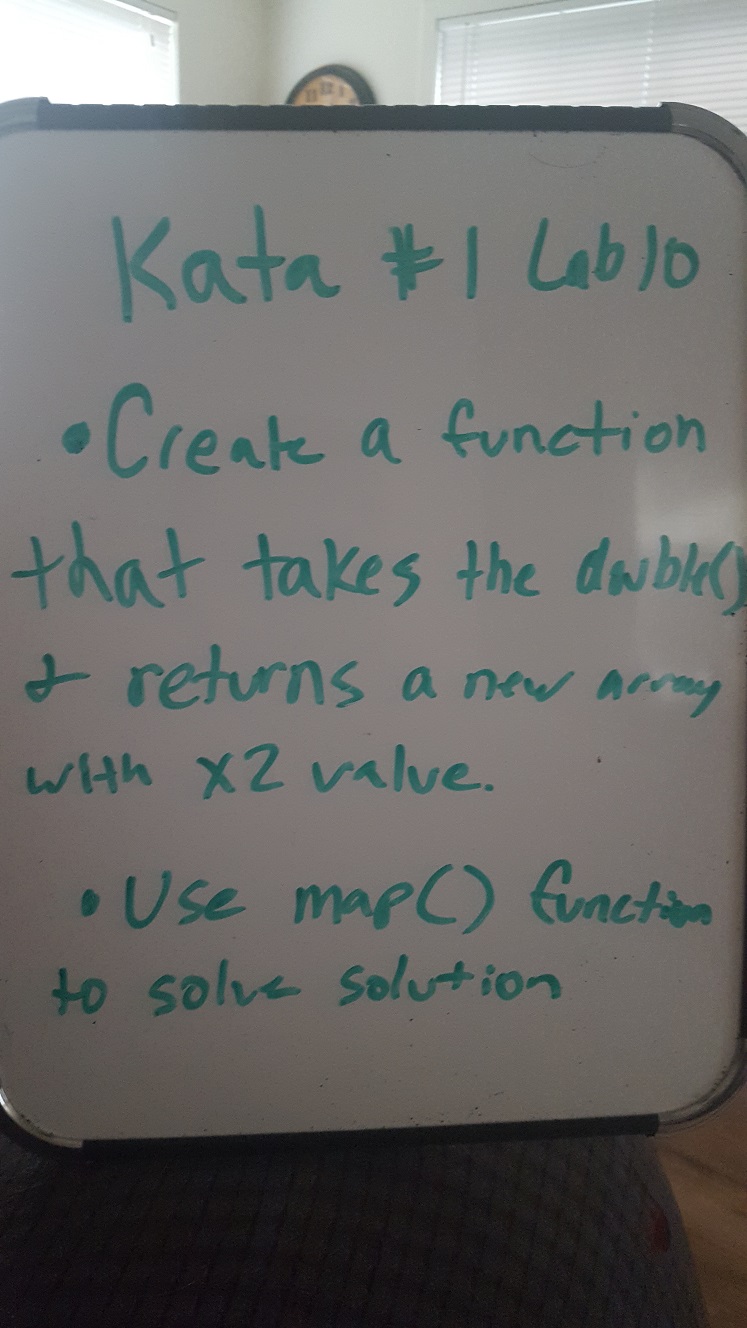 Kata #1 Lab 10
• Create a function
that takes the double()
& returns a new array
with x2 value.
• Use map() function
to solve solution